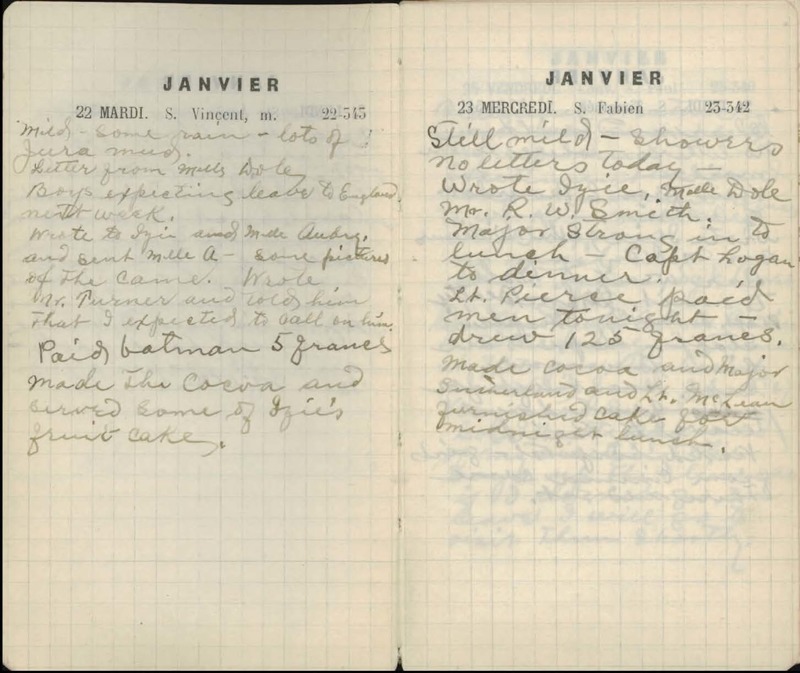 JANVIER
22 MARDI. S. Vinçent, m. 22-343
Mild - some rain - lots of
Jura mud.
Letter from Mells Dole
Boys expecting leave to England
next week.
Wrote to Izie and Mdle Aubry.
and sent Mlle A - some pictures
of the Came. Wrote
Mr. Turner and told him
that I expected to call on him.
Paid batman 5 francs
made the Cocoa and
served some of Izie's
fruit cake.
JANVIER
23 MERCREDI. S. Fabien 23-342
Still mild - showers
No letters today -
Wrote Izie, Mdle Dole
Mr. R. W. Smith.
Major Strong in to
lunch - Capt Logan
to dinner.
Lt. Pierce paid
men tonight -
drew 125 francs.
Made cocoa and Major
Sutherland and Lt. McLean
furnished cake for
midniget lunch.